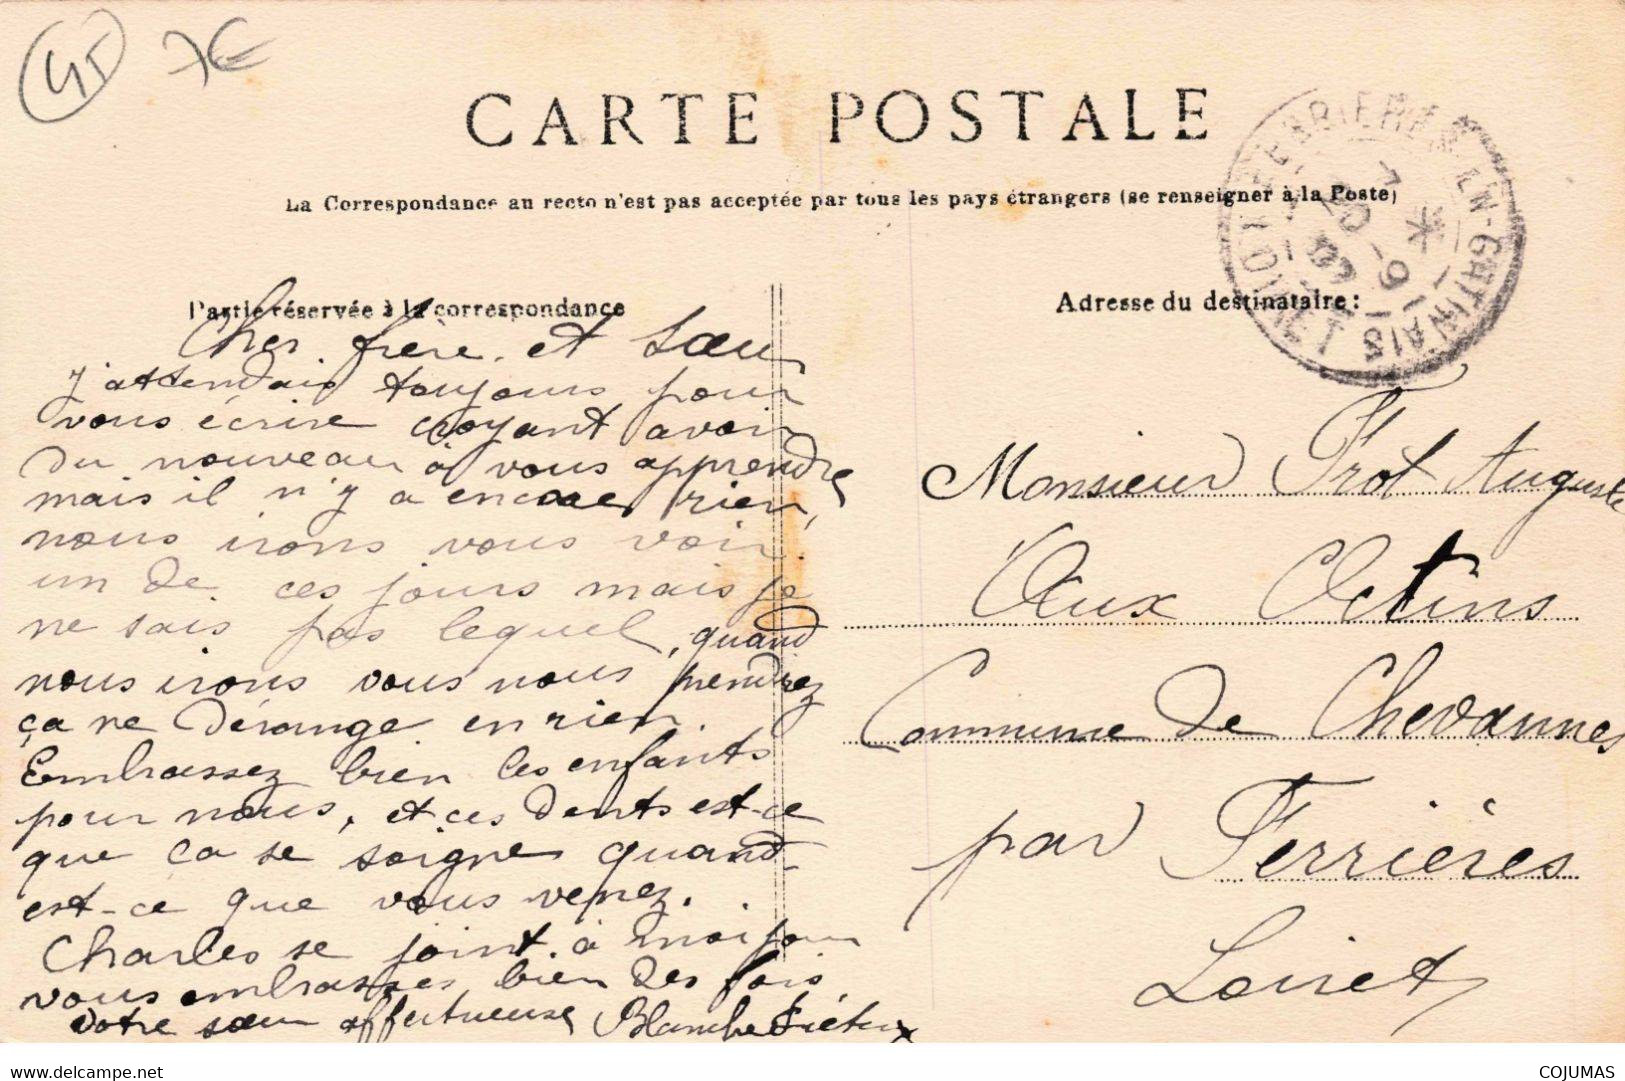 45 7€
CARTE POSTALE
La Correspondance au recto n'est pas acceptée par tous les pays étrangers (se renseigner à la Poste)
Partie réservée à la correspondance
Adresse du destinataire :
FERRIÈRES-EN-GATINAIS
Cher frère et Sœur
J'attendais toujours pour
vous écrire croyant avoir
du nouveau à vous apprendre
mais il n'y a encore rien,
nous irons vous voir
un de ces jours mais je
ne sais pas lequel, quand
nous irons vous nous prendrez
ça ne dérange en rien.
Embrassez bien les enfants
pour nous, et ces dents est-ce
que ça se soigne quand
est-ce que vous venez.
Charles se joint à moi pour
vous embrasser bien des fois
Votre sœur affectueuse Blanche
Monsieur Frot Auguste
Aux Octins
Commune de Chevannes
par Ferrières
Loiret
delcampe.net
COJUMAS